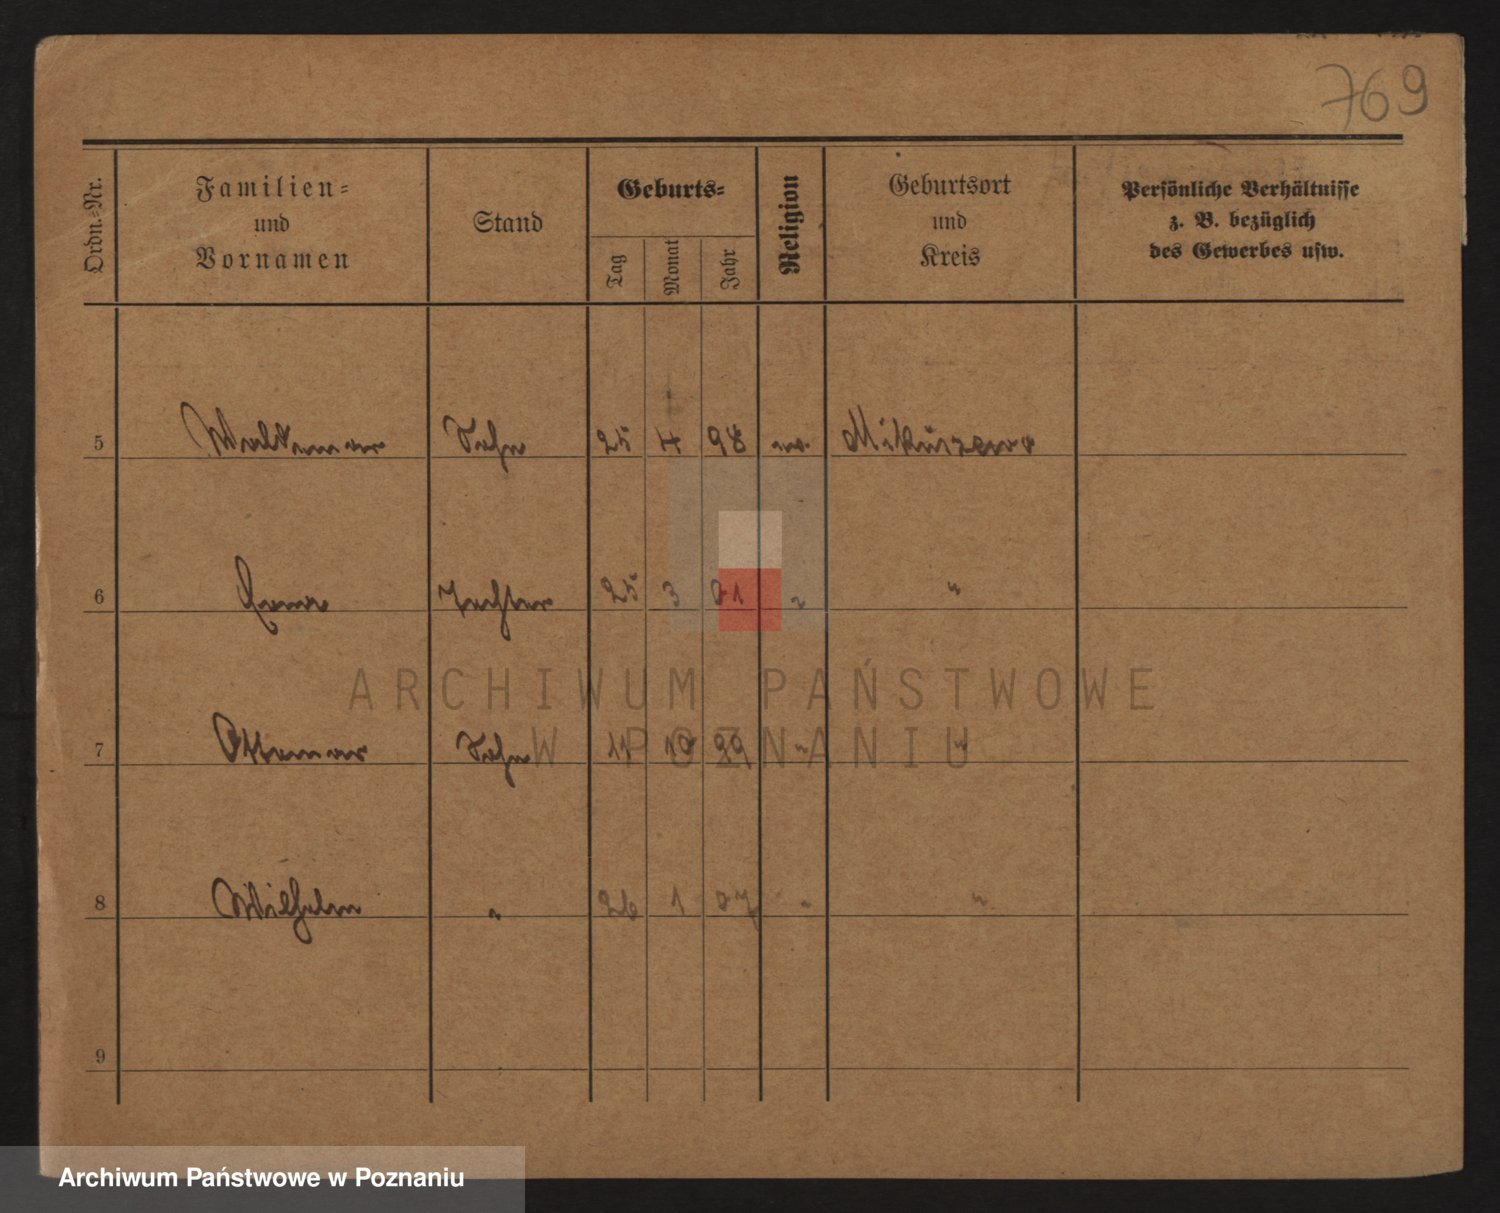 769
Ordn.-Nr.
Familien-
und
Vornamen
Stand
Geburts-
Tag
Monat
Jahr
Religion
Geburtsort
und
Kreis
Persönliche Verhältnisse
z. B. bezüglich
des Gewerbes usw.
5 Waldemar Sohn 25 4 98 ev. Mikuszewo
6 Tochter 25 3 01 " "
7 Ottomar Sohn 11 10 99 " "
8 Wilhelm " 26 1 07 " "
9
ARCHIWUM PAŃSTWOWE
W POZNANIU
Archiwum Państwowe w Poznaniu